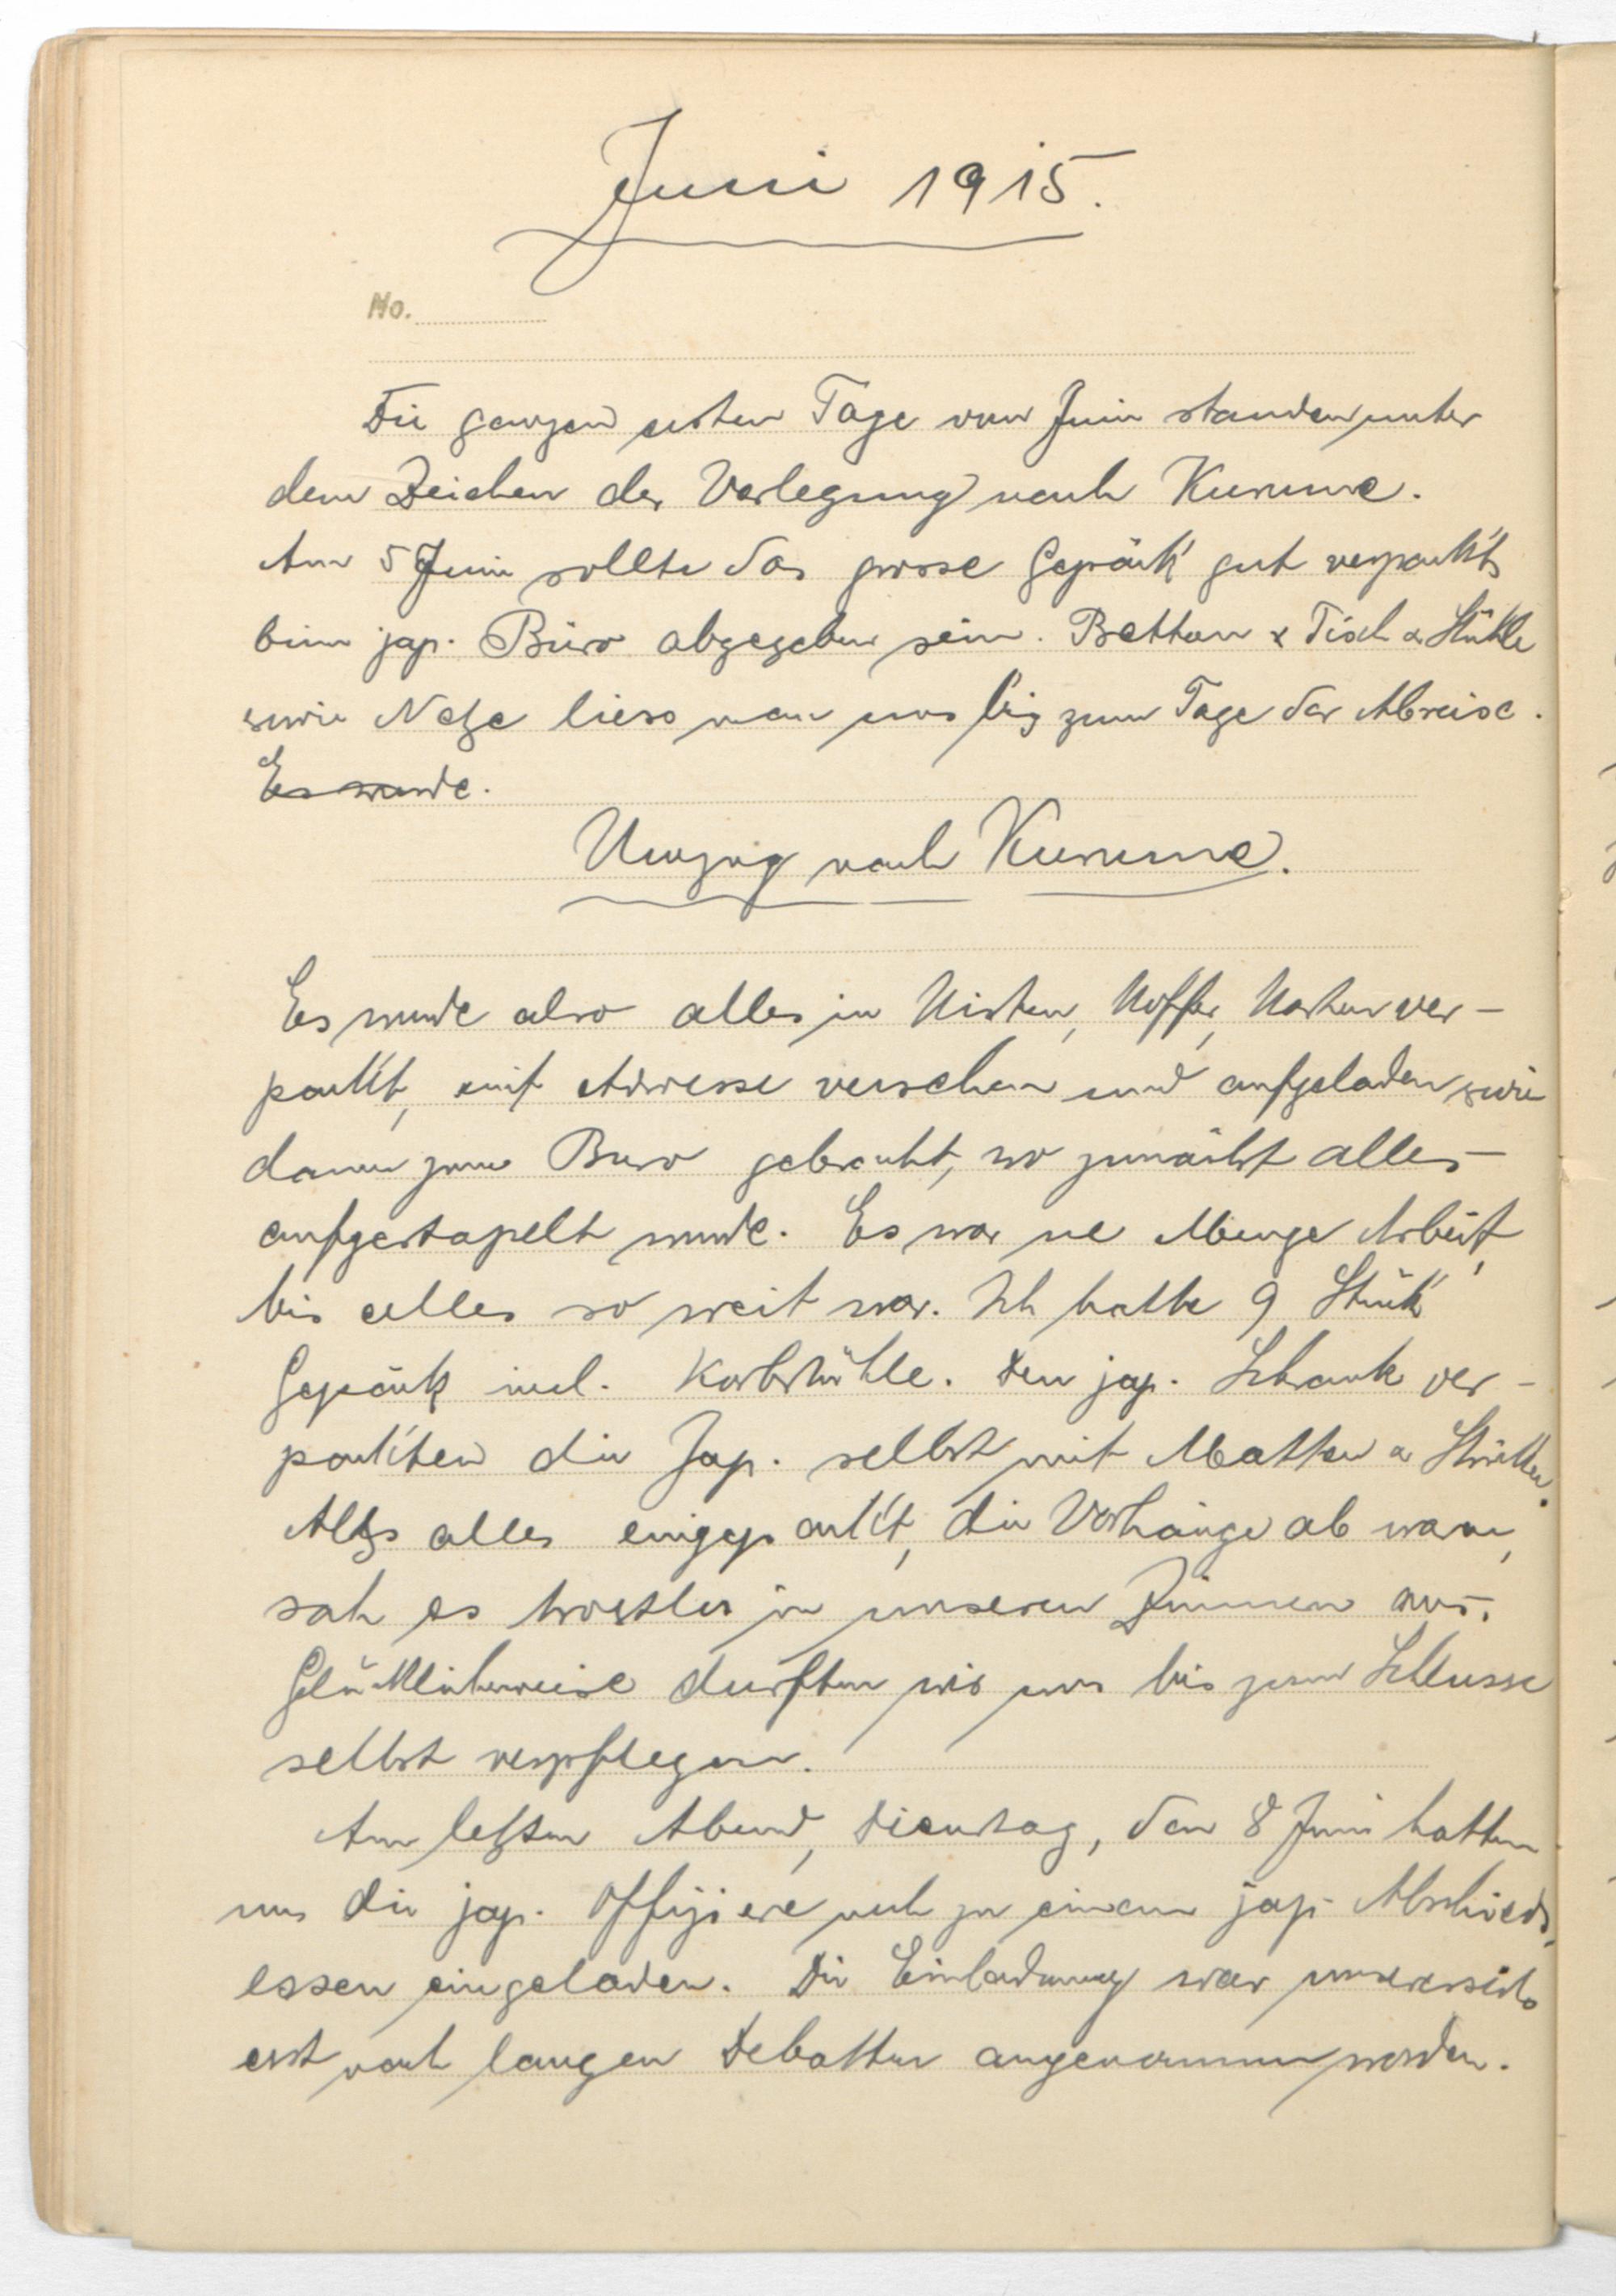 Juni 1915.
No.
Die ganzen ersten Tage vom Juni standen unter
dem Zeichen der Verlegung nach Kurume.
Am 5 Juni sollte das grosse Gepäck gut verpackt
beim jap. Büro abgegeben sein. Betten & Tisch & Stühle
sowie Netze liess man uns bis zum Tage der Abreise.
Es wurde.
Umzug nach Kurume.
Es wurde also alles in Kisten, Koffer, Kasten ver-
packt, mit Adresse versehen und aufgeladen sowie
dann zum Buro gebracht, wo zunächst alles
aufgestapelt wurde. Es war ne Menge Arbeit,
bis alles so weit war. Ich hatte 9 Stück
Gepäck incl. Korbstühle. Den jap. Schrank ver-
packten die Jap. selbst mit Matten & Stricken.
Als alles eingepackt, die Vorhänge ab waren,
sah es trostlos in unseren Zimmern aus.
Glücklicherweise durften wir uns bis zum Schlusse
selbst verpflegen.
Am letzten Abend, Dienstag, den 8 Juni hatten
uns die jap. Offiziere noch zu einem jap. Abschieds-
essen eingeladen. Die Einladung war unsererseits
erst nach langen Debatten angenommen worden.